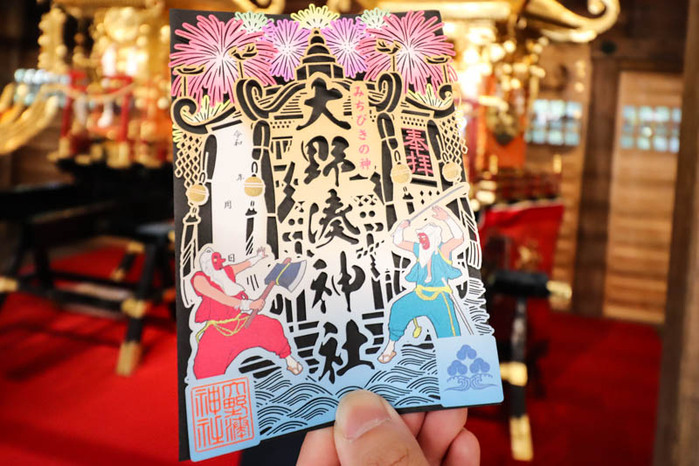 奉拝
みちびきの神
大野湊神社
令和 年 月 日
大野湊
神社